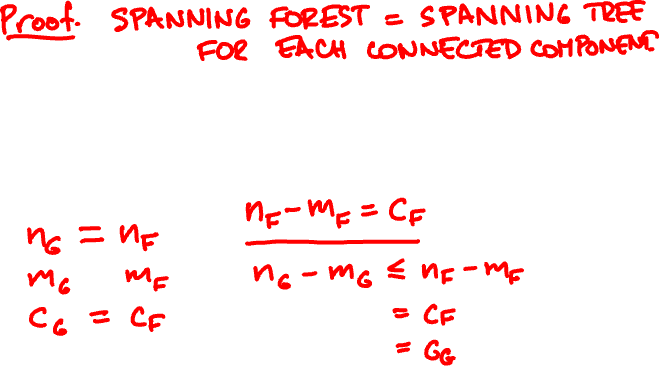 Proof. SPANNING FOREST = SPANNING TREE
FOR EACH CONNECTED COMPONENT
n_G = n_F
m_G m_F
C_G = C_F
n_F - m_F = C_F
n_G - m_G ≤ n_F - m_F
= C_F
= G_G